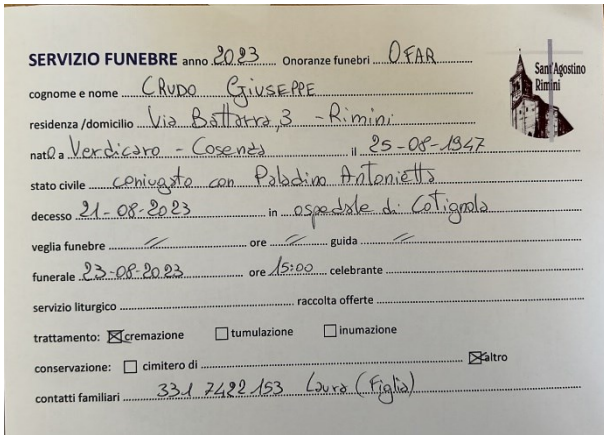 SERVIZIO FUNEBRE anno 2023 Onoranze funebri OFAR
Sant'Agostino
Rimini
cognome e nome CRUDO GIUSEPPE
residenza /domicilio Via Battarra, 3 - Rimini
nato a Verdicaro - Cosenza il 25-08-1947
stato civile coniugato con Paladino Antonietta
decesso 21-08-2023 in ospedale di Cotignola
veglia funebre // ore // guida //
funerale 23-08-2023 ore 15:00 celebrante
servizio liturgico raccolta offerte
trattamento: ☒ cremazione ☐ tumulazione ☐ inumazione
conservazione: ☐ cimitero di ☒ altro
contatti familiari 331 7422153 Laura (Figlia)